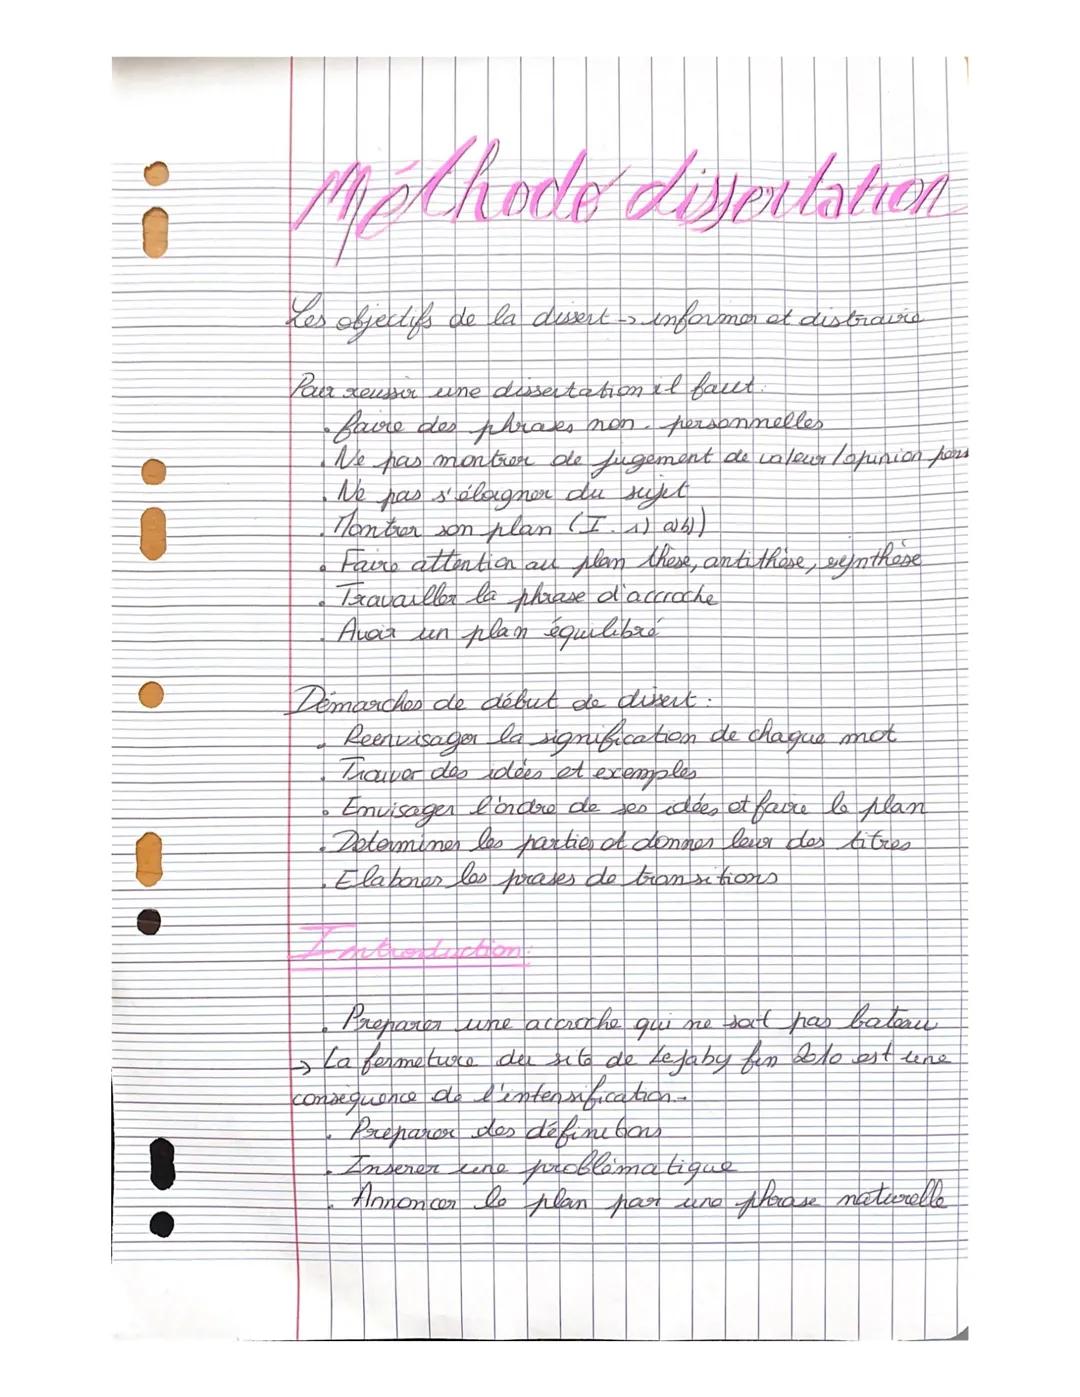 Méthode dissertation
Les objectifs de la dissert → informer et distraire
Pour reussir une dissertation il faut:
. faire des phrases non-personnelles
. Ne pas montrer de jugement de valeur / opinion pers
. Ne pas s'éloigner du sujet
. Montrer son plan (I. 1) a)b))
. Faire attention au plan thèse, antithèse, synthèse
. Travailler la phrase d'accroche
. Avoir un plan équilibré
Démarches de début de disert :
. Reenvisager la signification de chaque mot
. Trouver des idées et exemples
. Envisager l'ordre de ses idées et faire le plan
. Determiner les parties et donner leur des titres
. Elaborer les prases de transitions
Introduction:
. Preparer une accroche qui ne soit pas bateau
→ La fermeture du site de Lejaby fin 2010 est une
consequence de l'intensification.
. Préparer des définitions
. Inserer une problématique
. Annoncer le plan par une phrase naturelle